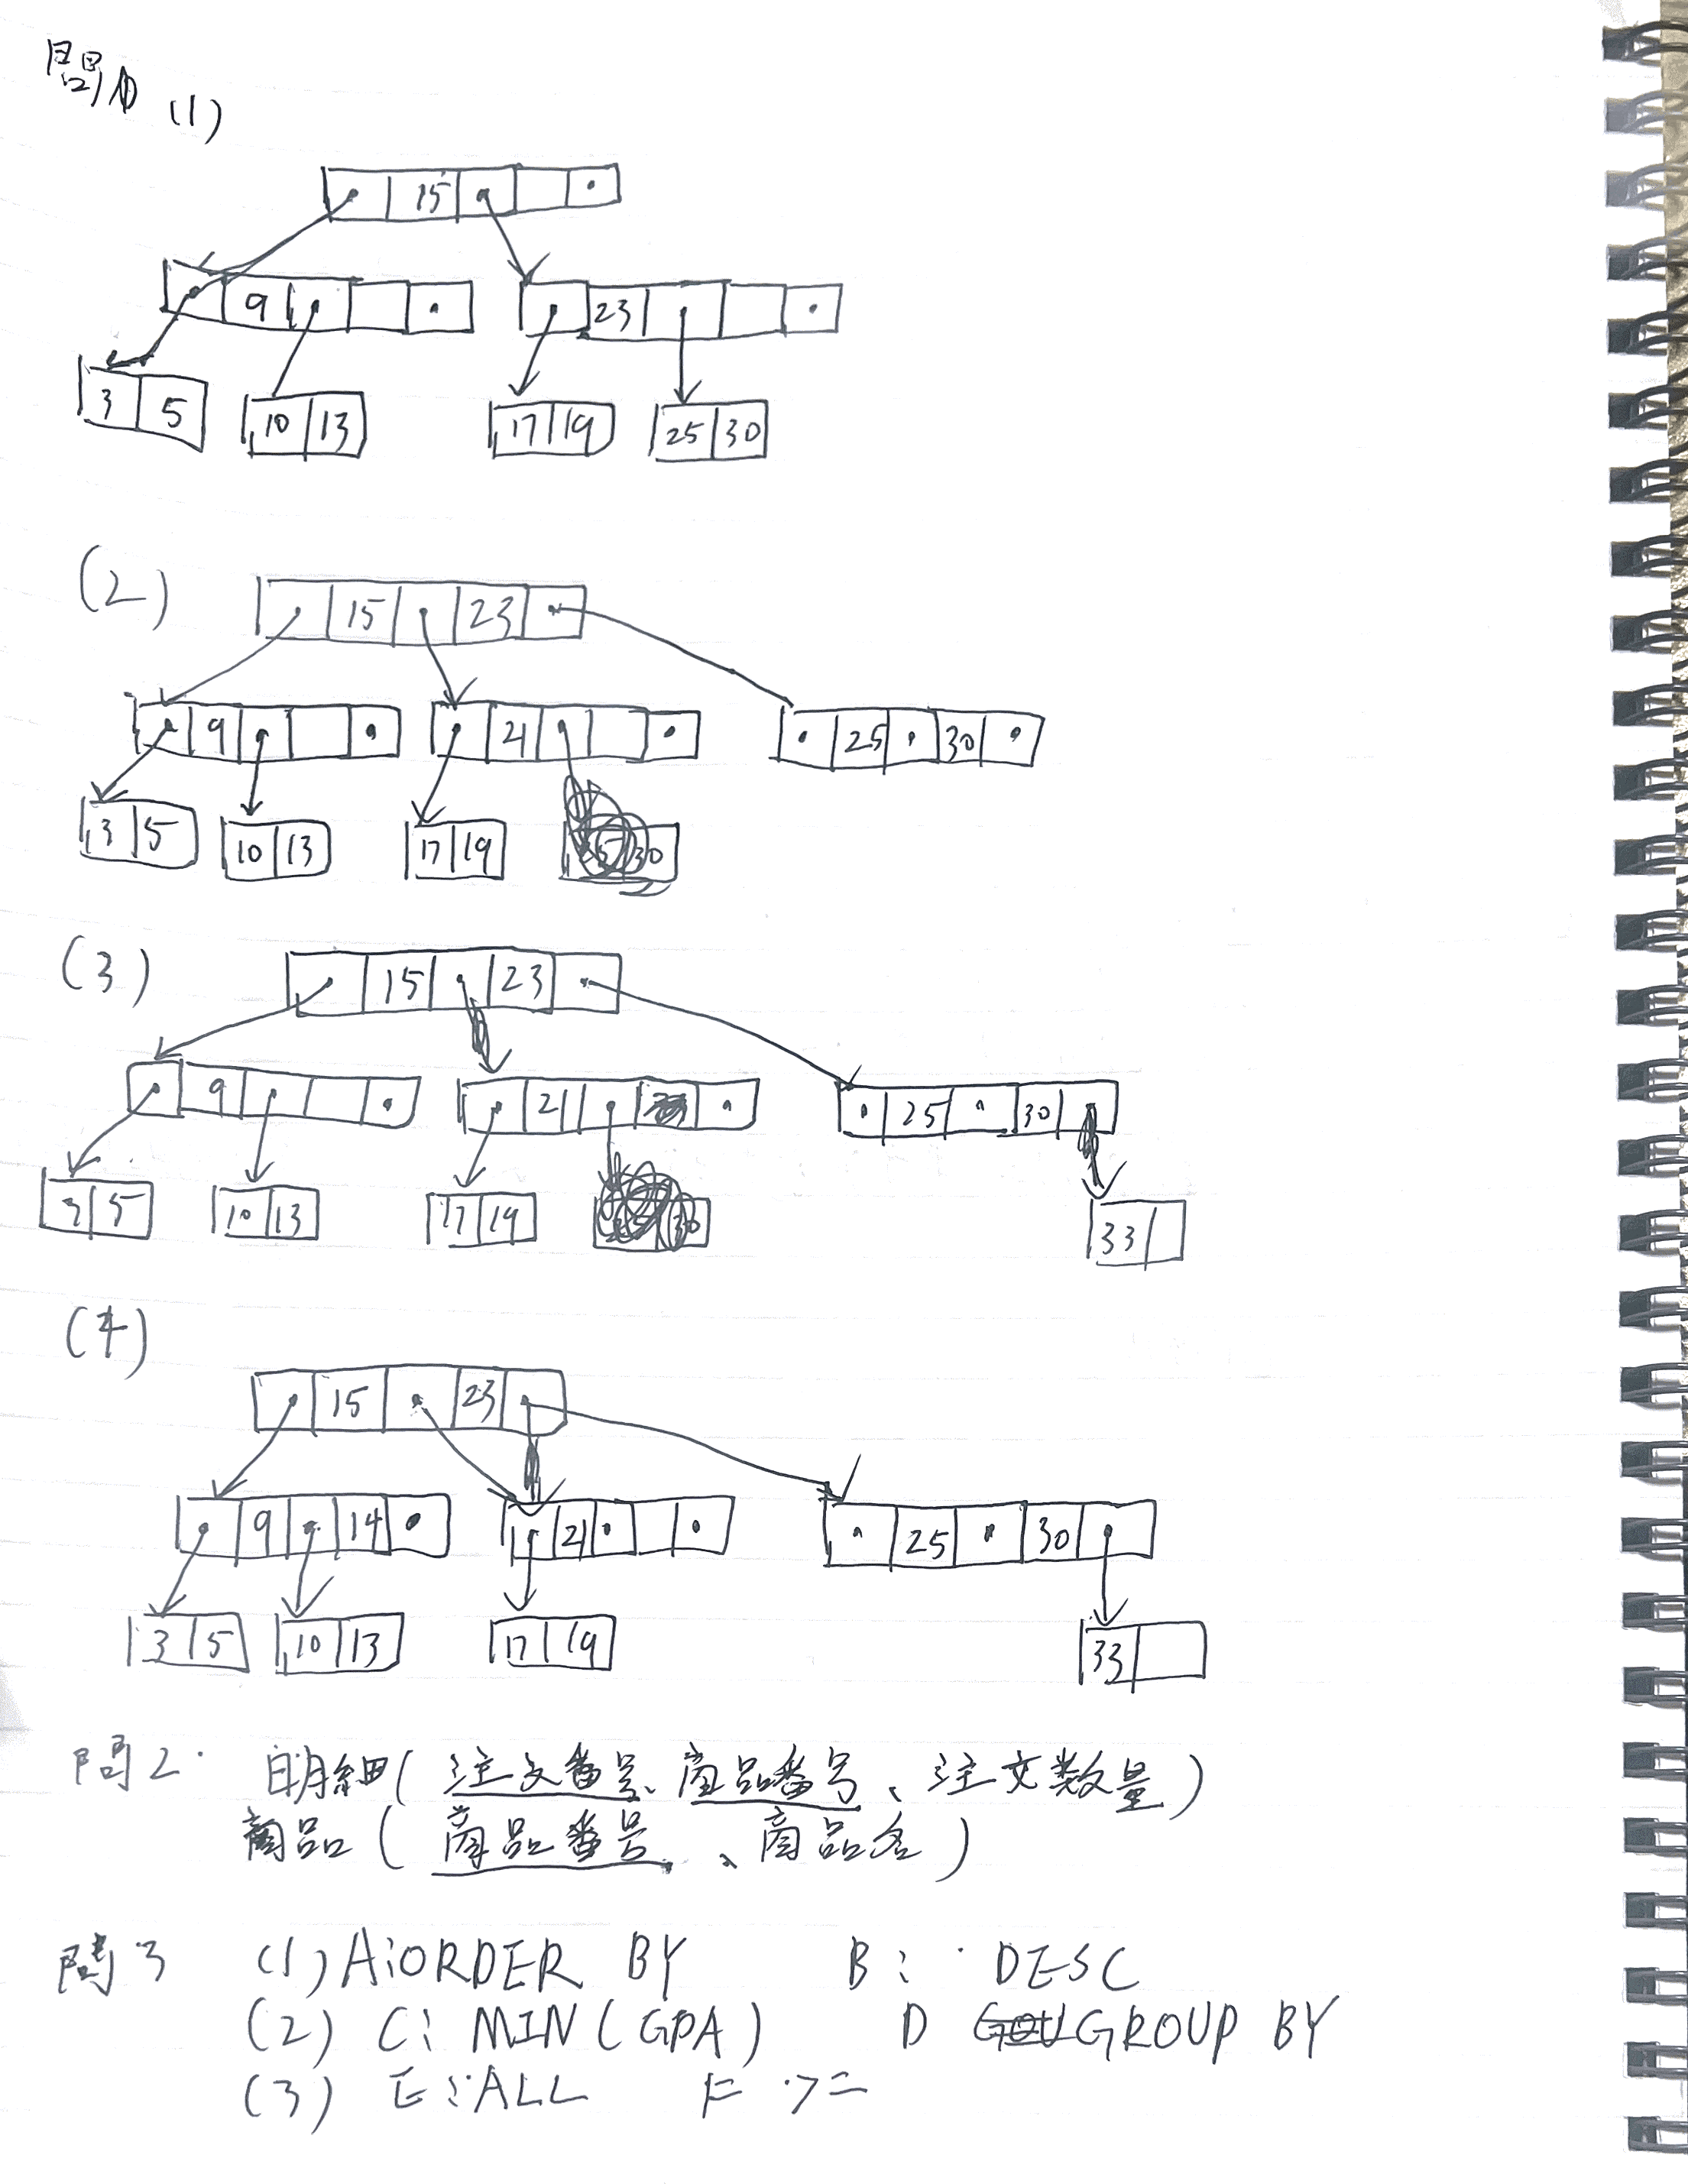 問1 (1)
15
9 23
3 5 10 13 17 19 25 30
(2)
15 23
9 21 25 30
3 5 10 13 17 19
(3)
15 23
9 21 25 30
3 5 10 13 17 19
33
(4)
15 23
9 14 21 25 30
3 5 10 13 17 19 33
問2. 明細(注文番号、商品番号、注文数量)
商品(商品番号、商品名)
問3 (1) A:ORDER BY B: DESC
(2) C: MIN(GPA) D GROUP BY
(3) E:ALL F >=